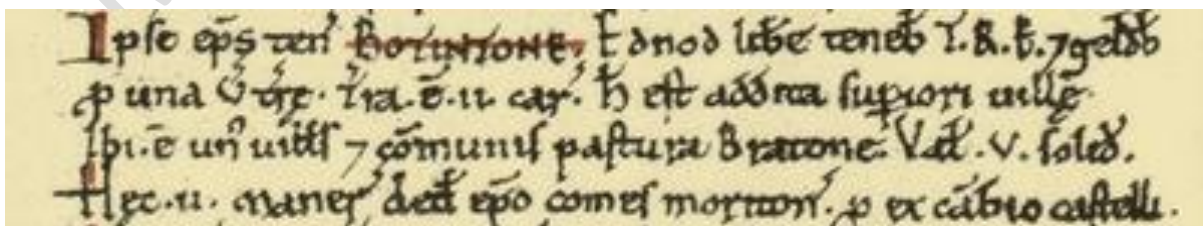 Ipse ep̄s ten̄ BOTINTONE. Ednod libe teneb T.R.E. ⁊ geldb̄
ꝑ una v̓ træ. Tr̄a. ē. ii. car̓. H̄ est addita superiori uillę
Ibi. ē un̓ uill̄s ⁊ cōmunis pastura Bratone. Val̄. V. solid̓.
Hęc. ii. maner̓ ded̄ ep̄o comes moriton̓. ꝑ excābio castelli.